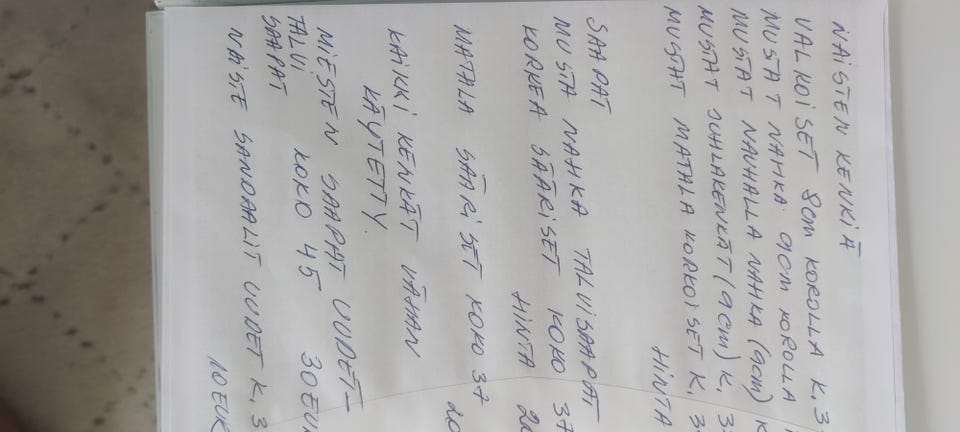 NAISTEN KENKIÄ
VALKOISET 8cm KOROLLA K. 3
MUSTAT NAHKA 9cm KOROLLA
MUSTAT NAUHALLA NAHKA (9cm) K
MUSTAT JUHLAKENKÄT (9cm) K. 3
MUSTAT MATALA KORKOISET K. 3
HINTA
SAAPAT
MUSTA NAHKA TALVISAAPAT
KORKEA SÄÄRISET KOKO 37
HINTA 20
MATALA SÄÄRISET KOKO 37
20
KAIKKI KENKÄT VÄHÄN
KÄYTETTY.
MIESTEN SAAPAT UUDET-
TALVI KOKO 45 30EUR
SAAPAT
NAISTE SANDAALIT UUDET K. 3
10EUR